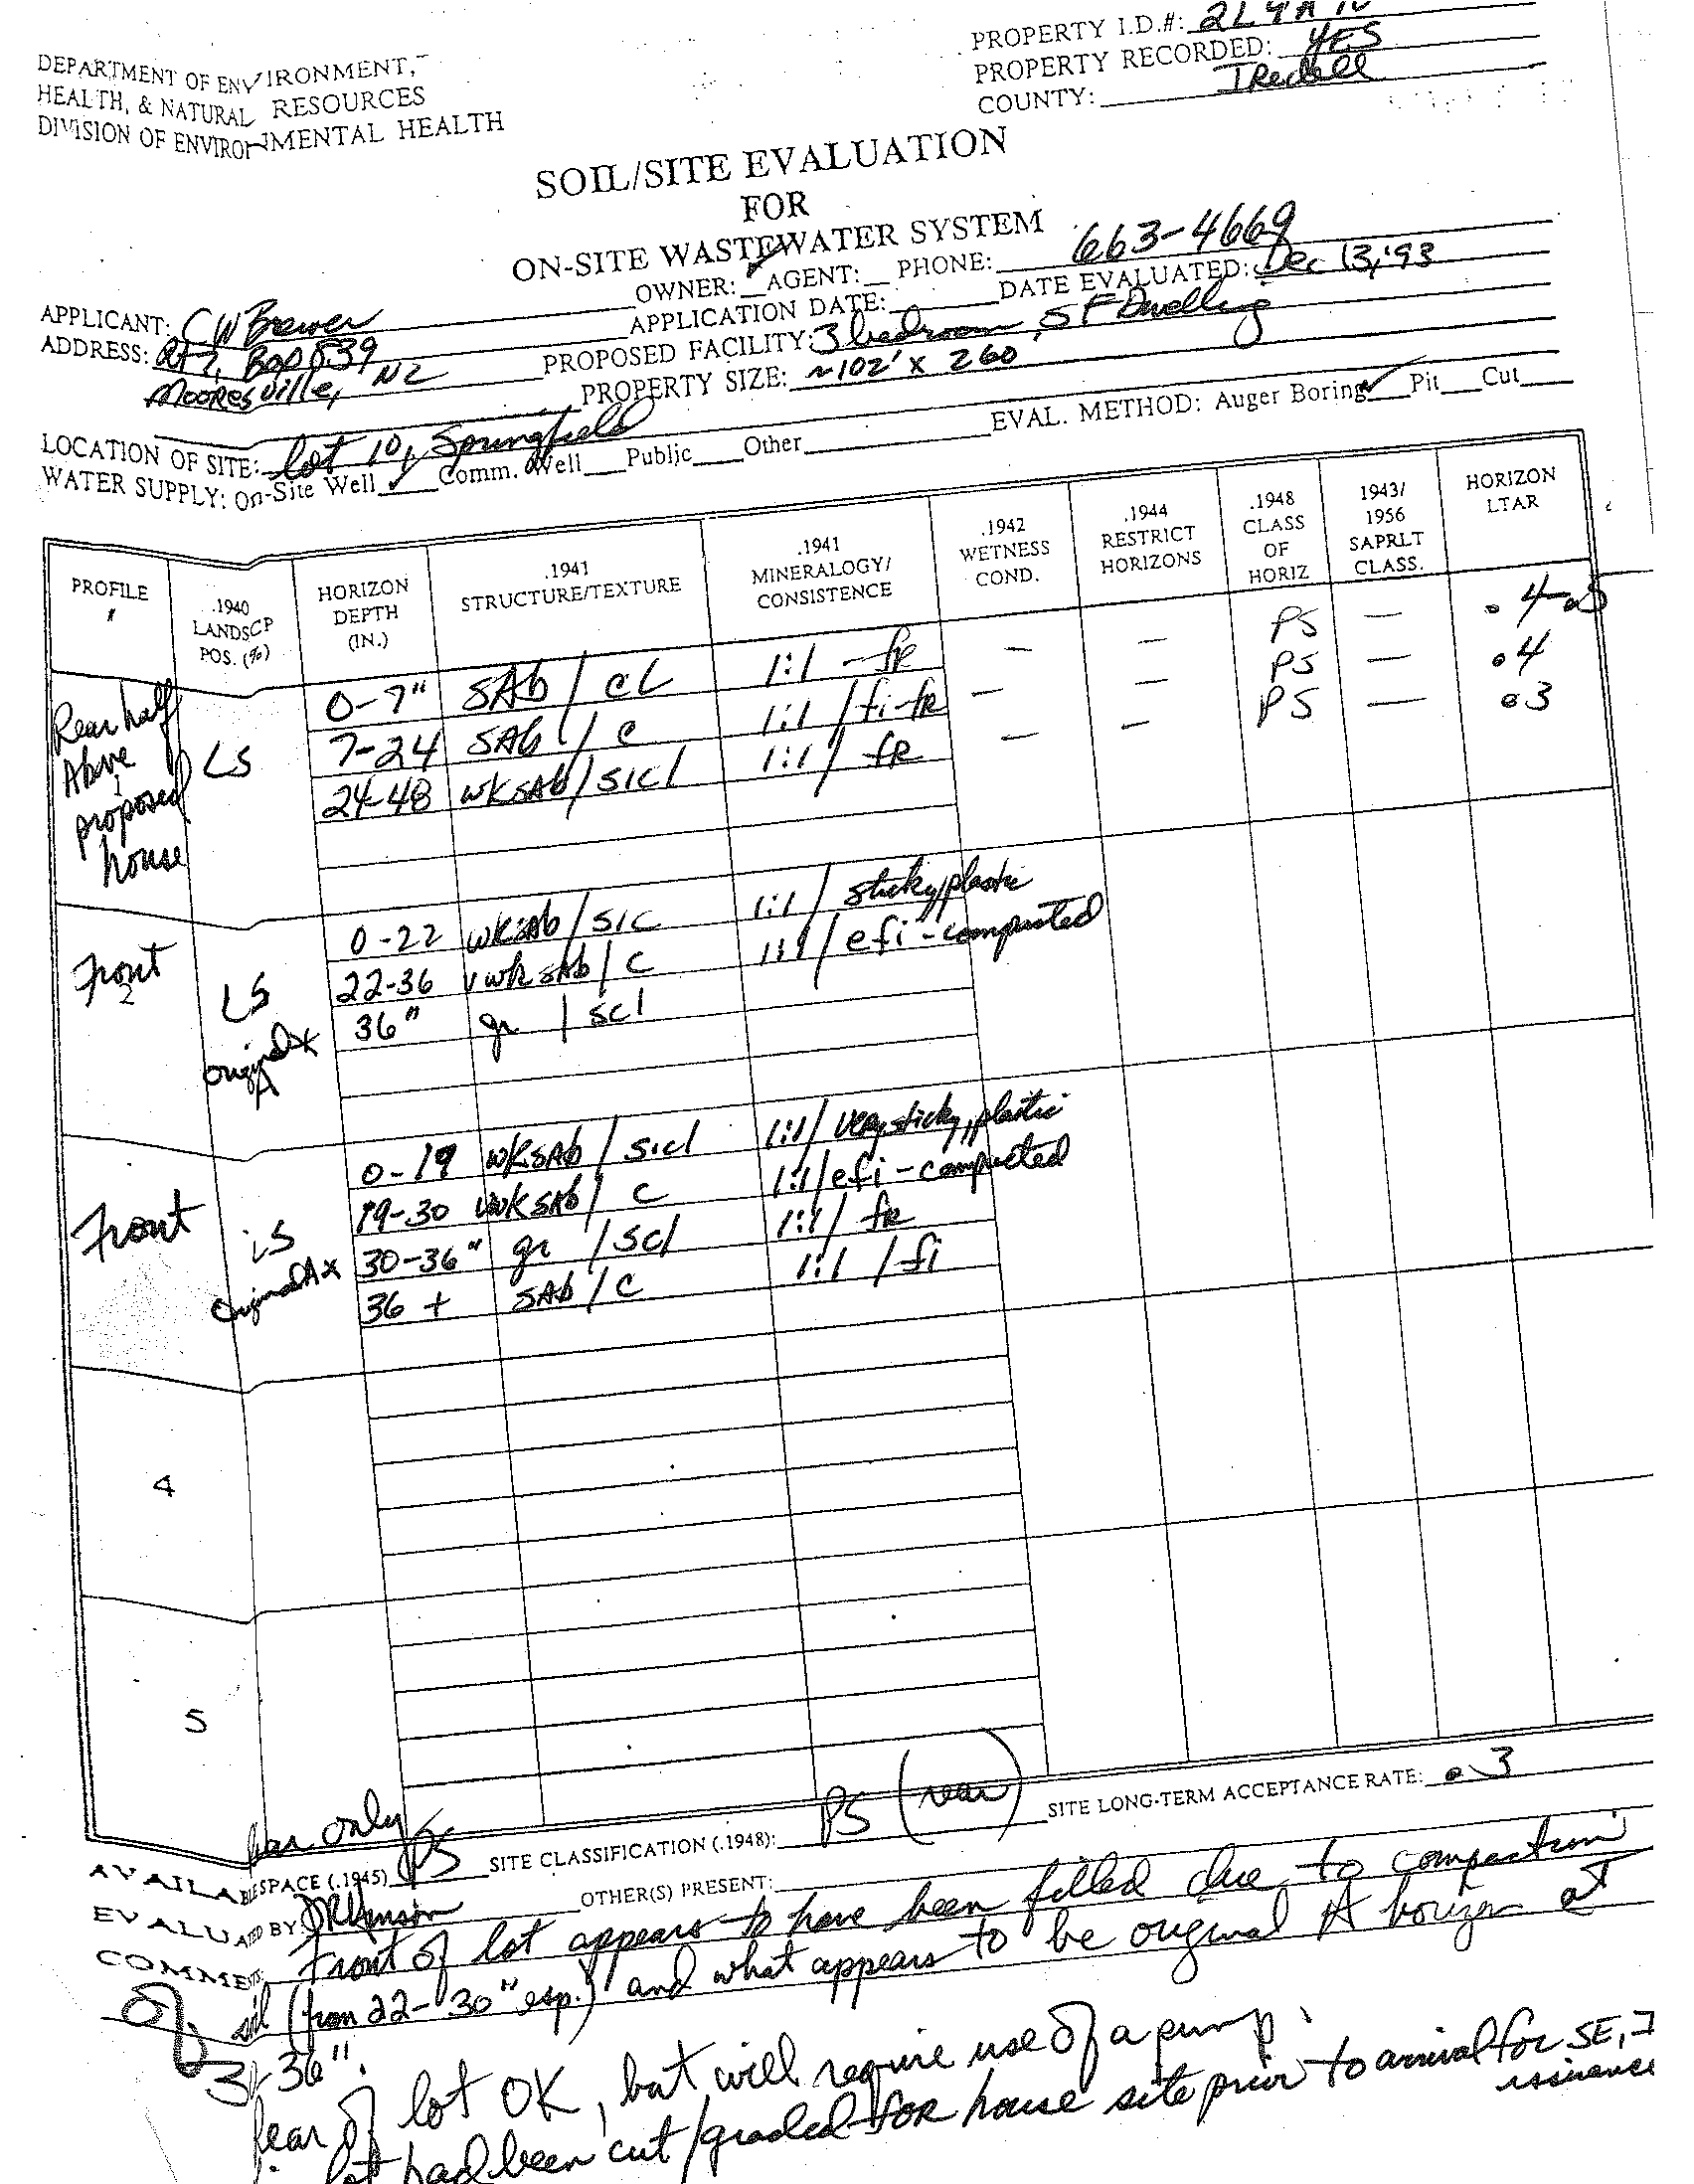 PROPERTY I.D.#: 2L4A10
PROPERTY RECORDED: YES
COUNTY: IRedell
DEPARTMENT OF ENVIRONMENT,
HEALTH, & NATURAL RESOURCES
DIVISION OF ENVIRONMENTAL HEALTH
SOIL/SITE EVALUATION
FOR
ON-SITE WASTEWATER SYSTEM
OWNER: ✓ AGENT: PHONE: 663-4669
APPLICANT: CW Brewer APPLICATION DATE: DATE EVALUATED: Dec 13, '93
ADDRESS: Rt 2, Box 539 PROPOSED FACILITY: 3 bedroom SF Dwelling
Mooresville, NC PROPERTY SIZE: ~102' x 260'
LOCATION OF SITE: Lot 10, Springfield EVAL. METHOD: Auger Boring ✓ Pit Cut
WATER SUPPLY: On-Site Well ✓ Comm. Well Public Other
PROFILE # .1940 LANDSCP POS. (%) HORIZON DEPTH (IN.) .1941 STRUCTURE/TEXTURE .1941 MINERALOGY/ CONSISTENCE .1942 WETNESS COND. .1944 RESTRICT HORIZONS .1948 CLASS OF HORIZ 1943/ 1956 SAPRLT CLASS. HORIZON LTAR
Rear half Above 1 proposed house LS
0-7" SAb / CL 1:1 - fr — — PS — .4-.5
7-24 SAb / C 1:1 / fi-fr — — PS — .4
24-48 wkSAb / SICl 1:1 / fr — — PS — .3
Front 2 LS Original A x
0-22 wkSAb / SIC 1:1 / sticky/plastic
22-36 vwk SAb / C 1:1 / efi - compacted
36" gr / scl
Front LS Original A x
0-19 wkSAb / sicl 1:1 / very sticky, plastic
19-30 vwk SAb / C 1:1 / efi - compacted
30-36" gr / scl 1:1 / fr
36 + SAb / C 1:1 / fi
4
5
rear only
AVAILABLE SPACE (.1945) PS SITE CLASSIFICATION (.1948): PS (rear) SITE LONG-TERM ACCEPTANCE RATE: .3
EVALUATED BY: OTHER(S) PRESENT:
COMMENTS: Front of lot appears to have been filled due to compaction
of soil (from 22-30" esp.) and what appears to be original A horizon at
36".
Rear of lot OK, but will require use of a pump.
lot had been cut/graded for house site prior to arrival for SE, I
issuance